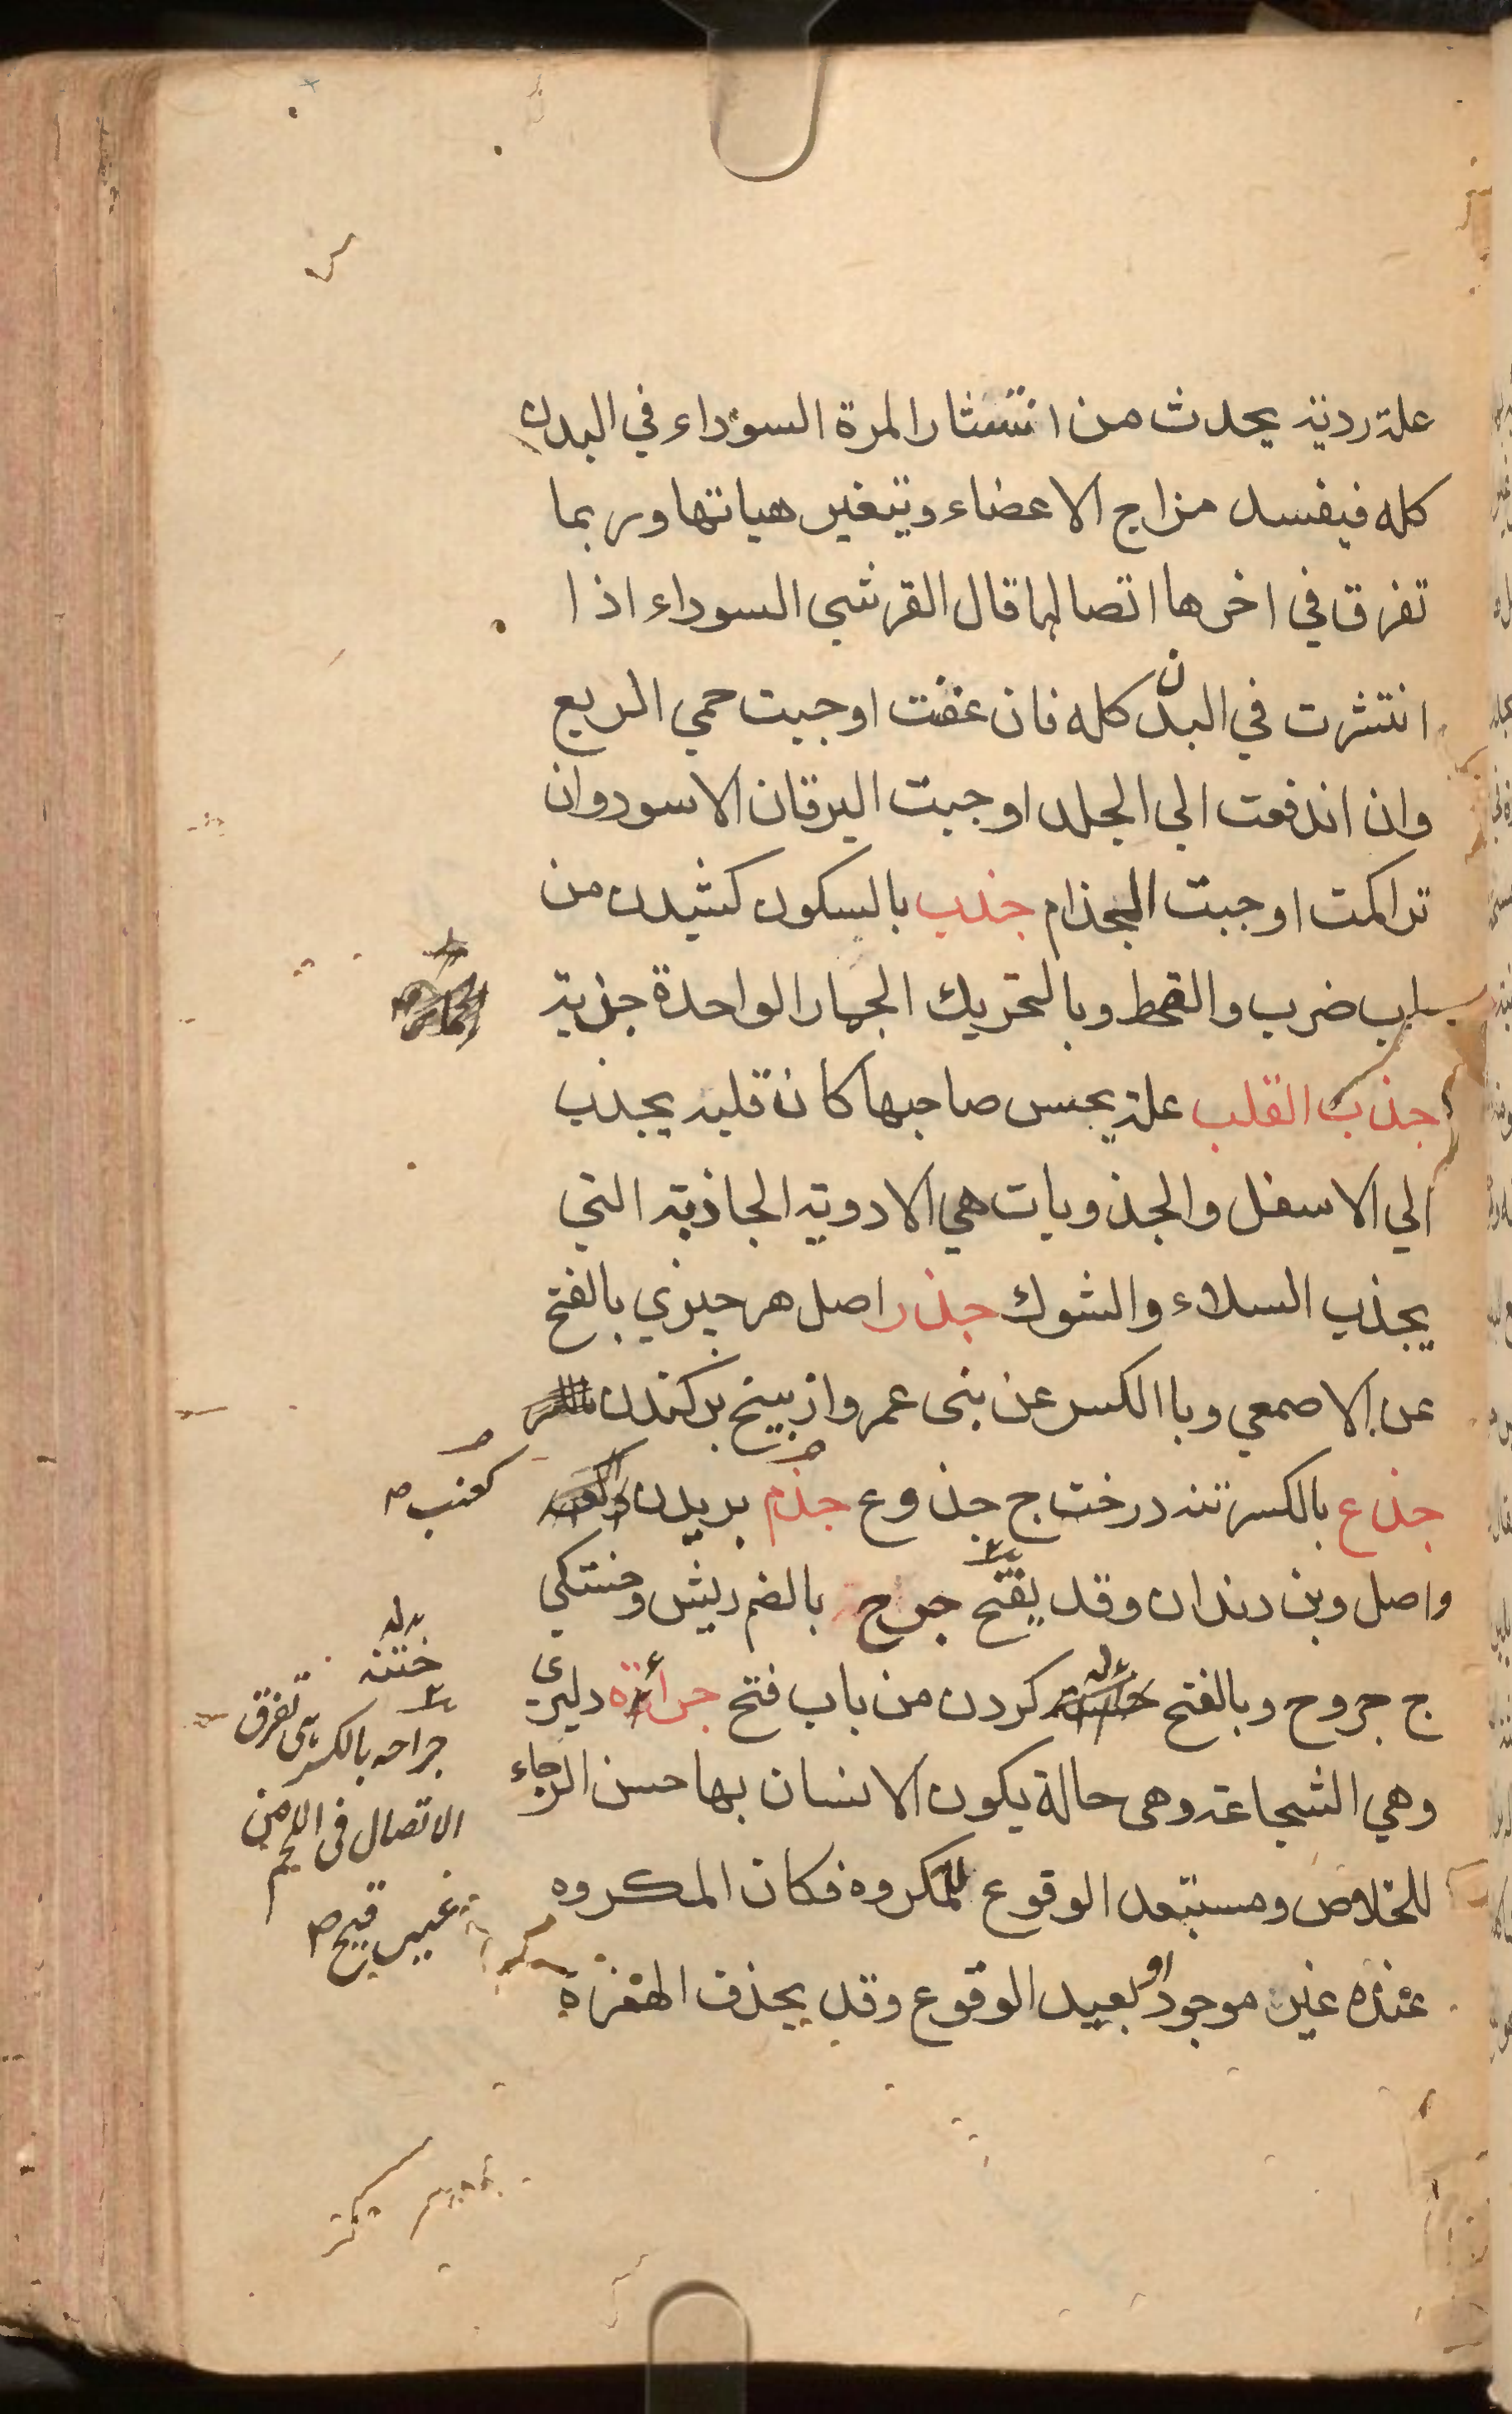 علة ردية يحدث من انتشار المرة السوداء في البدن
كله فيفسد مزاج الاعضاء ويتغير هياتها وربما
تفرق في اخرها اتصالها قال القرشي السوداء اذا
انتشرت في البدن كله فان عفنت اوجبت حمي الربع
وان اندفعت الي الجلد اوجبت اليرقان الاسود وان
تراكمت اوجبت الجذام جذب بالسكون كشيدن من
باب ضرب والقحط وبالتحريك الجمار الواحدة جذبة
جذب القلب علة يحس صاحبها كان قلبه يجذب
الي الاسفل والجذوبات هي الادوية الجاذبة التي
يجذب السلاء والشوك جذر اصل هر چيزي بالفتح
عن الاصمعي وبا الكسر عن بنى عمرو از بيخ بركندن
جذع بالكسر تنه درخت ج جذوع جذم بريدن
كعنب صح
واصل وبن دندان وقد يفتح جرح بالضم ريش وخستكي
ج جروح وبالفتح كردن من باب فتح جرأة دليرى
وهي الشجاعة وهى حالة يكون الانسان بها حسن الرجاء
للخلاص ومستبعد الوقوع للمكروه فكان المكروه
عنده غير موجود او بعيد الوقوع وقد يحذف الهمزة
خسته
جراحه بالكسر تفرق
الاتصال فى اللحم من
غير قيح صح